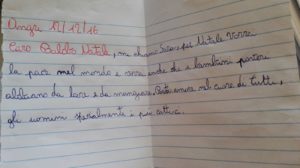 Angri 12/12/16
Caro Babbo Natale, mi chiamo Sara e per Natale Vorrei
la pace nel mondo e vorrei anche che i bambini poveri
abbiano da bere e da mangiare. Porta amore nel cuore di tutti,
gli uomini specialmente i più cattivi.